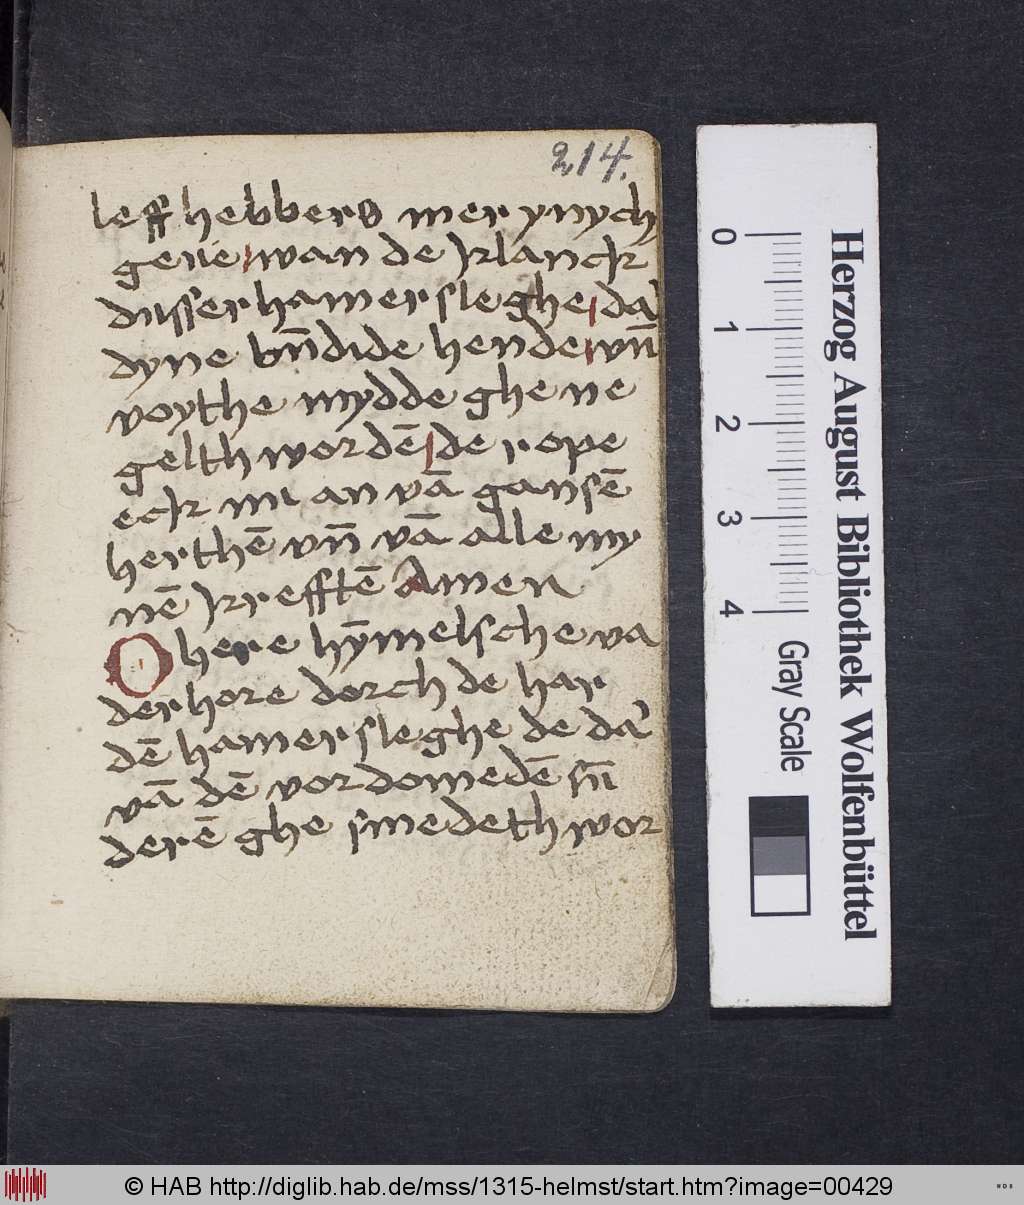 214.
leff hebbers mer ynych
gerie wan de klanck
disser hamer sleghe da
dyne bn̄dide hende vn̄
voythe mydde ghe ne
gelth wordē de rope
eck mi an vā gansē
herthē vn̄ vā alle my
nē krefftē Amen
O here hȳmelsche va
der hore dorch de har
dē hamer sleghe de da
vā dē vordomedē sn̄
derē ghe smedeth wor
0
1
2
3
4
Gray Scale
Herzog August Bibliothek Wolfenbüttel
© HAB http://diglib.hab.de/mss/1315-helmst/start.htm?image=00429